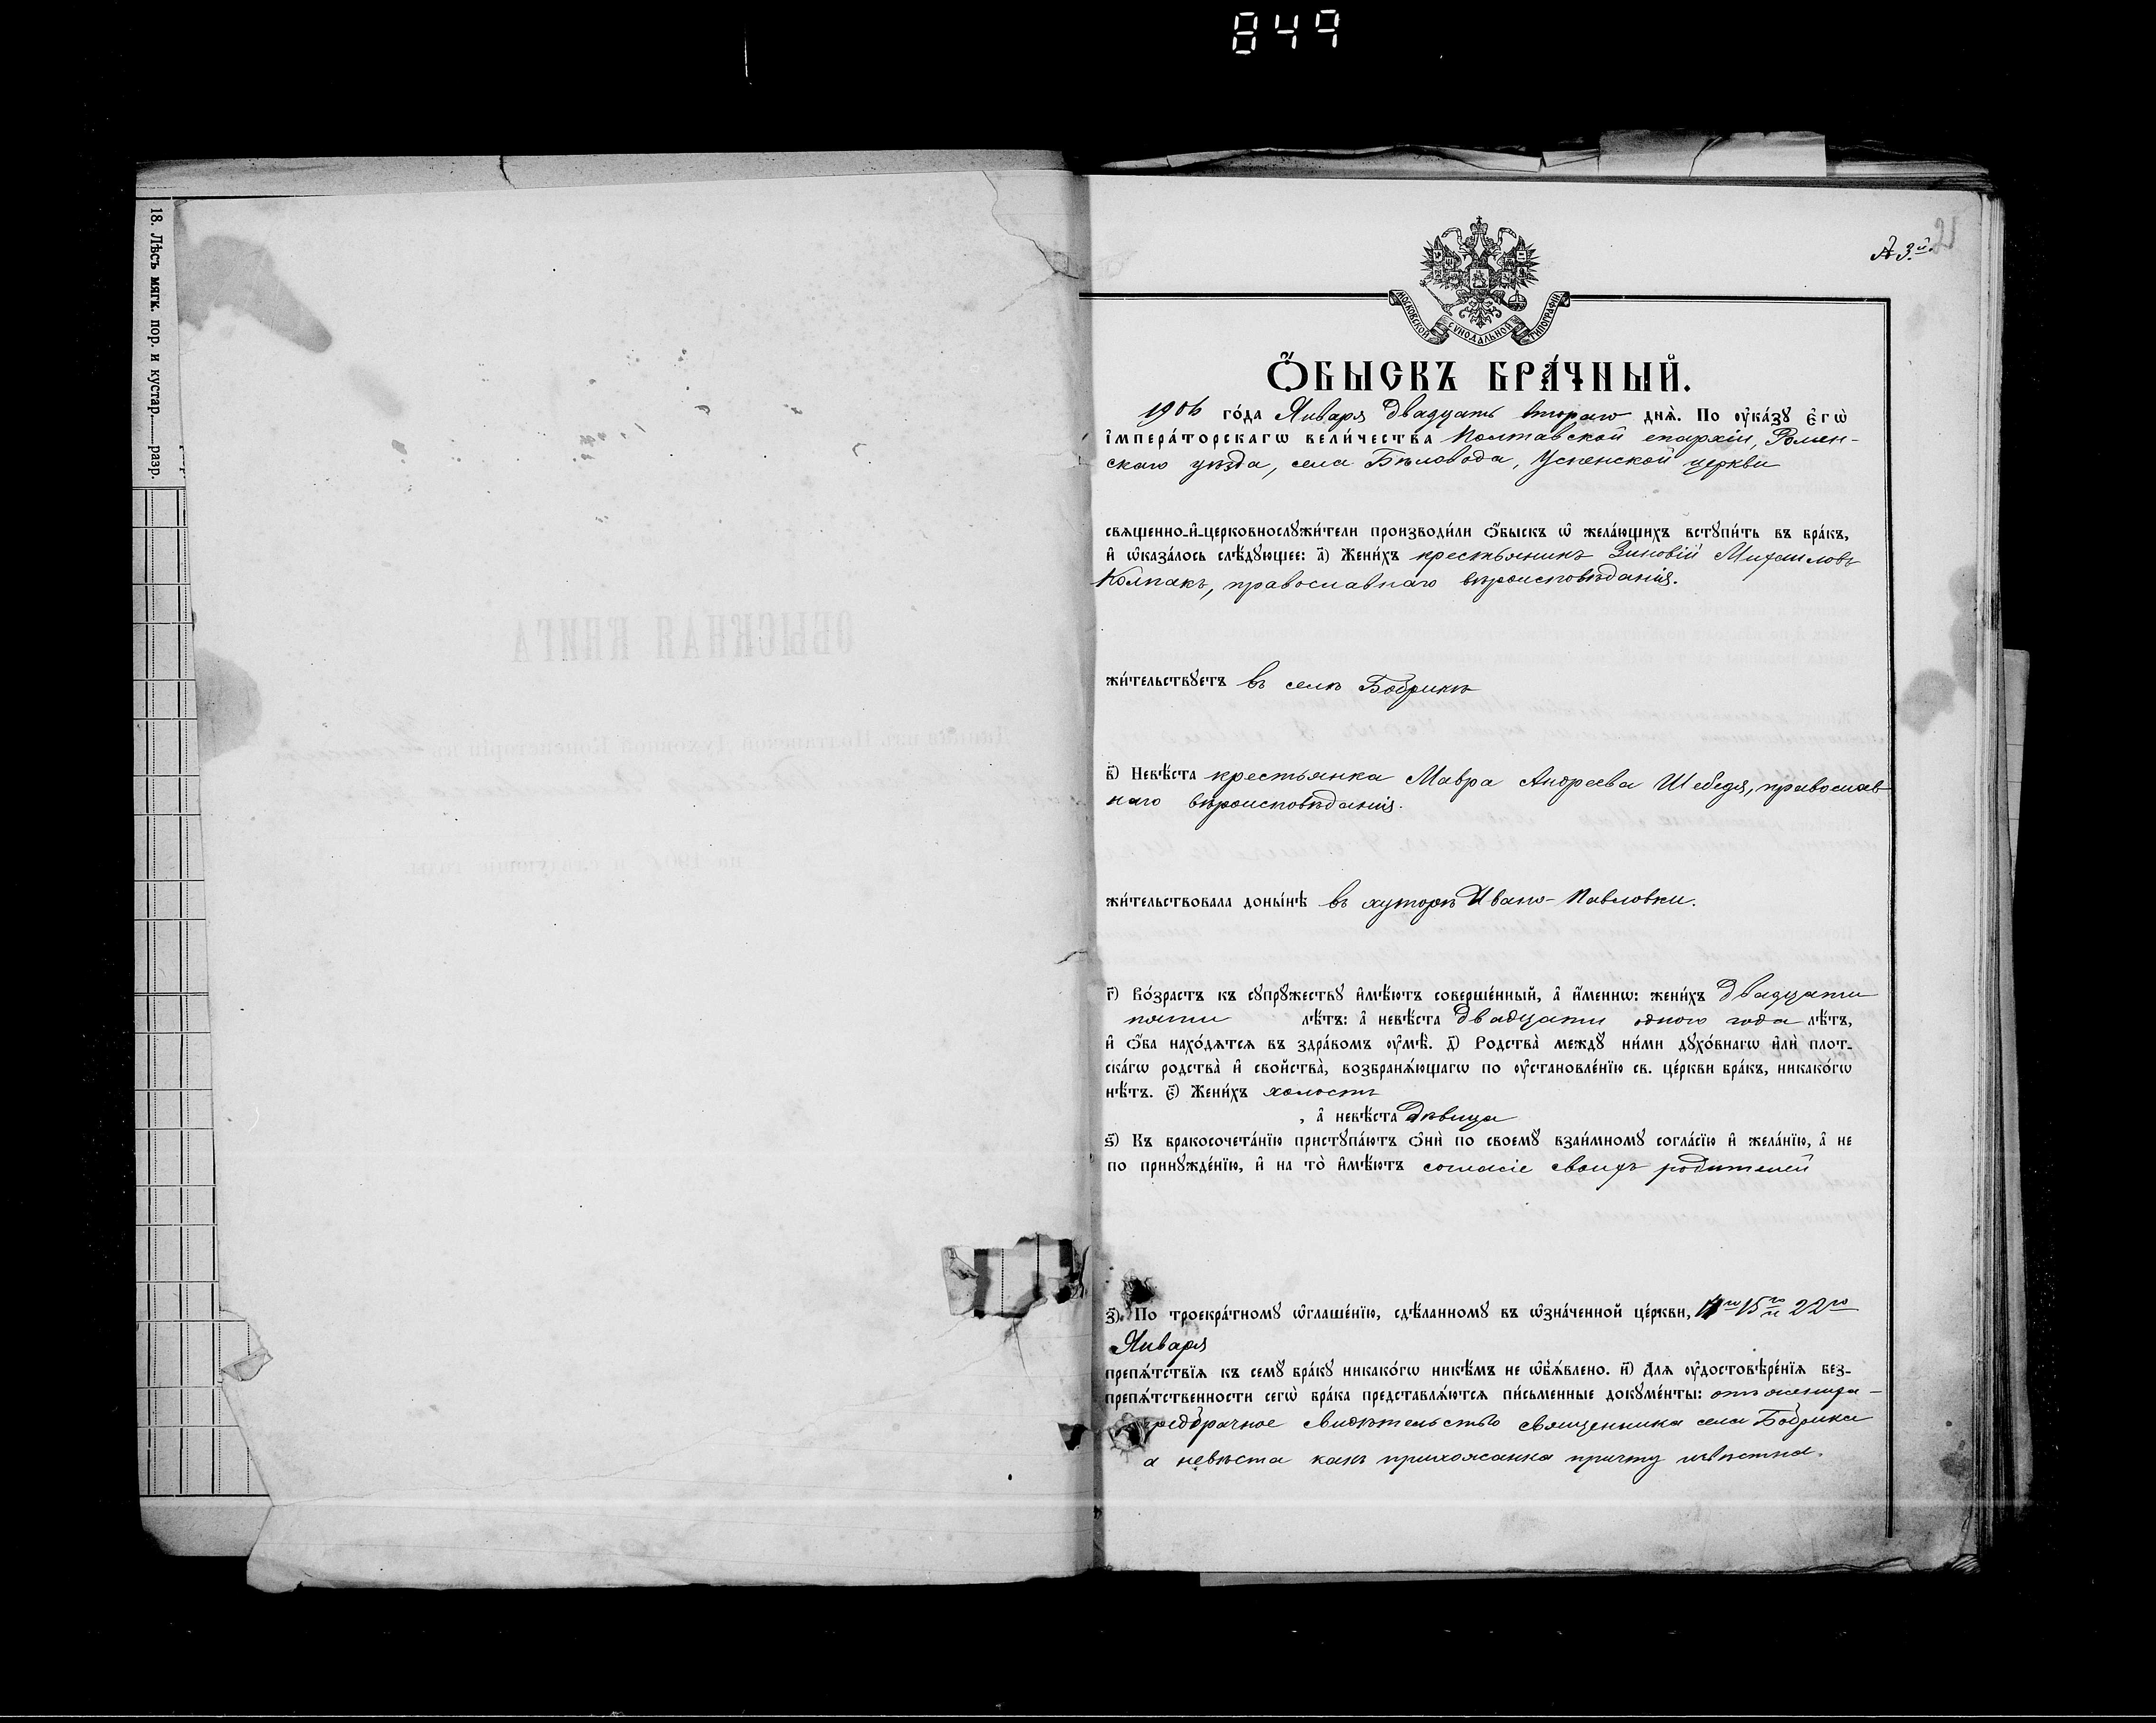 849
18. Лѣсъ мягк. пор. и кустар.........разр.
ОБЫСКНАЯ КНИГА
№ 3й.
МОСКОВСКОЙ СѴНОДАЛЬНОЙ ТИПОГРАФІИ
Ѻ҆БЫСКЪ БРА́ЧНЫЙ.
1906 го́да Января двадцать втораго днѧ̀. По ᲂу҆ка́зꙋ є҆гѡ̀
і҆мпера́торскагѡ вели́чества Полтавской епархіи, Ромен-
скаго уѣзда, села Бѣловода, Успенской церкви
свѧщенно-и҆-церковнослꙋжи́тели производи́ли ѻ҆́быскъ ѡ҆ жела́ющихъ встꙋпи́ть въ бра́къ,
и҆ ѡ҆каза́лось слѣ́дꙋющее: а҃) Жени́хъ крестьянинъ Зиновій Михаиловъ
Колпакъ, православнаго вѣроисповѣданія.
жи́тельствꙋетъ въ селѣ Бобрикѣ
в҃) Невѣ́ста крестьянка Мавра Андреева Шебедя, православ-
наго вѣроисповѣданія.
жи́тельствовала доны́нѣ въ хуторѣ Ивано-Павловки.
г҃) Во́зрастъ къ сꙋпрꙋ́жествꙋ и҆мѣ́ютъ соверше́нный, а҆ и҆́меннѡ: жени́хъ двадцати
пяти лѣ́тъ: а҆ невѣ́ста двадцати одного года лѣ́тъ,
и҆ ѻ҆́ба нахо́дѧтсѧ въ здра́вомъ ᲂу҆мѣ̀. д҃) Родства̀ междꙋ ни́ми дꙋхо́внагѡ и҆лѝ плот-
ска́гѡ родства̀ и҆ свойства̀, возбранѧ́ющагѡ по ᲂу҆становле́нїю св. це́ркви бра́къ, никако́гѡ
нѣ́тъ. є҃) Жени́хъ холостъ
, а҆ невѣ́ста дѣвица
ѕ҃) Къ бракосочета́нїю пристꙋпа́ютъ ѻ҆нѝ по своемꙋ̀ взаи́мномꙋ согла́сїю и҆ жела́нїю, а҆ не
по принꙋжде́нїю, и҆ на то̀ и҆мѣ́ютъ согласіе своихъ родителей
з҃) По троекра́тномꙋ ѡ҆глаше́нїю, сдѣ́ланномꙋ въ ѡ҆зна́ченной це́ркви, 15го и 22го
Января
препѧ́тствїѧ къ семꙋ̀ бра́кꙋ никако́гѡ никѣ́мъ не ѡ҆б̾ѧ́влено. и҃) Длѧ ᲂу҆достовѣре́нїѧ без-
препѧ́тственности сегѡ̀ бра́ка представлѧ́ютсѧ пи́сьменные докꙋме́нты: отъ жениха -
предбрачное свидѣтельство священника села Бобрика
а невѣста какъ прихожанка причту извѣстна.